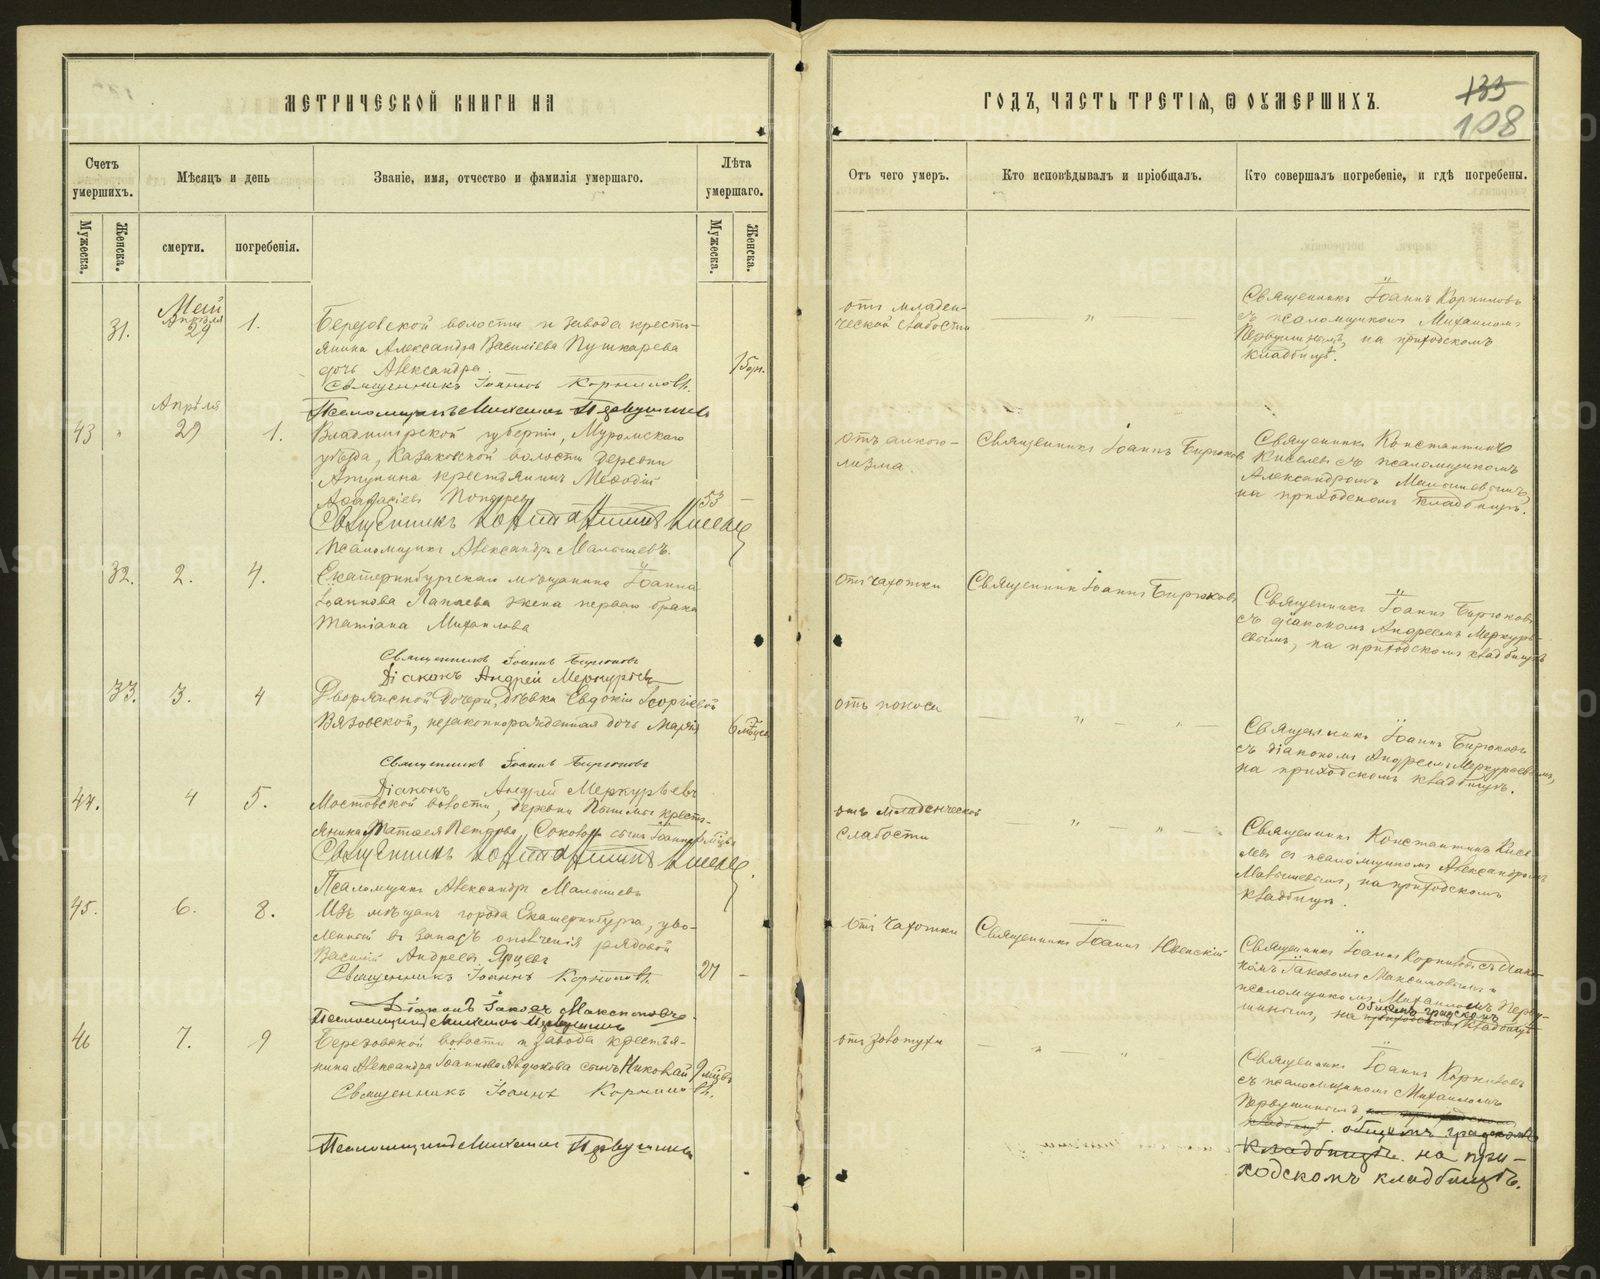 МЕТРИЧЕСКОЙ КНИГИ НА
ГОДЪ, ЧАСТЬ ТРЕТІЯ, Ѿ ОУМЕРШИХЪ.
135
108
Счетъ умершихъ.
Мѣсяцъ и день
Званіе, имя, отчество и фамилія умершаго.
Лѣта умершаго.
Отъ чего умеръ.
Кто исповѣдывалъ и пріобщалъ.
Кто совершалъ погребеніе, и гдѣ погребены.
Мужеска.
Женска.
смерти.
погребенія.
Мужеска.
Женска.
Май
Апрѣля
31.
29
1.
Березовской волости и завода кресть-
янина Александра Василіева Пушкарева
дочь Александра.
Священникъ Іоаннъ Корниловъ.
Псаломщикъ Михаилъ Первушинъ
отъ младен-
ческой слабости
Священникъ Іоаннъ Корниловъ
съ псаломщикомъ Михаиломъ
Первушинымъ, на приходскомъ
кладбищѣ.
Апрѣля
43
29
1.
Владимірской губерніи, Муромскаго
уѣзда, Казаковской волости деревни
крестьянинъ Меѳодій
Аѳанасіевъ
53
Священникъ Константинъ Киселевъ
Псаломщикъ Александръ Малышевъ.
отъ алкого-
лизма.
Священникъ Іоаннъ Бирюковъ
Священникъ Константинъ
Киселевъ съ псаломщикомъ
Александромъ Малышевымъ,
на приходскомъ кладбищѣ.
32.
2.
4.
Екатеринбургскаго мѣщанина Іоанна
Іоаннова Лапаева жена перваго брака
Татіана Михаилова
Священникъ Іоаннъ Бирюковъ
Діаконъ Андрей Меркурьевъ
отъ чахотки
Священникъ Іоаннъ Бирюковъ
Священникъ Іоаннъ Бирюковъ
съ діакономъ Андреемъ Меркурь-
евымъ, на приходскомъ кладбищѣ
33.
3.
4
Дворянской дочери, дѣвки Евдокіи Георгіевой
Вязовской, незаконнорожденная дочь Марія
6 мѣсец.
Священникъ Іоаннъ Бирюковъ
Діаконъ Андрей Меркурьевъ
отъ поноса
Священникъ Іоаннъ Бирюковъ
съ діакономъ Андреемъ Меркурьевымъ,
на приходскомъ кладбищѣ.
44.
4
5.
Мостовской волости, деревни Пышмы кресть-
янина Матѳея Петрова сынъ Іоаннъ
Священникъ Константинъ Киселевъ.
Псаломщикъ Александръ Малышевъ
отъ младенческой
слабости
Священникъ Константинъ Кисе-
левъ съ псаломщикомъ Александромъ
Малышевымъ, на приходскомъ
кладбищѣ.
45.
6.
8.
Изъ мѣщанъ города Екатеринбурга, уво-
ленный въ запасъ ополченія рядовой
Василій Андреевъ Ярцевъ
27
Священникъ Іоаннъ Корниловъ.
Діаконъ Іаковъ Максимовъ.
Псаломщикъ Михаилъ Первушинъ
отъ чахотки
Священникъ Іоаннъ Ювенскій
Священникъ Іоаннъ Корниловъ съ діако-
номъ Іаковомъ Максимовымъ и
псаломщикомъ Михаиломъ Перву-
общемъ градскомъ
шинымъ, на приходскомъ кладбищѣ
46
7.
9
Березовской волости и завода крестья-
нина Александра Іоаннова Авдюкова сынъ Николай
9 мѣцъ
Священникъ Іоаннъ Корниловъ.
Псаломщикъ Михаилъ Первушинъ
отъ золотухи
Священникъ Іоаннъ Корниловъ
съ псаломщикомъ Михаиломъ
Первушинымъ, на приходскомъ
кладбищѣ. общемъ градскомъ
кладбищѣ. на при-
ходскомъ кладбищѣ.
METRIKI.GASO-URAL.RU